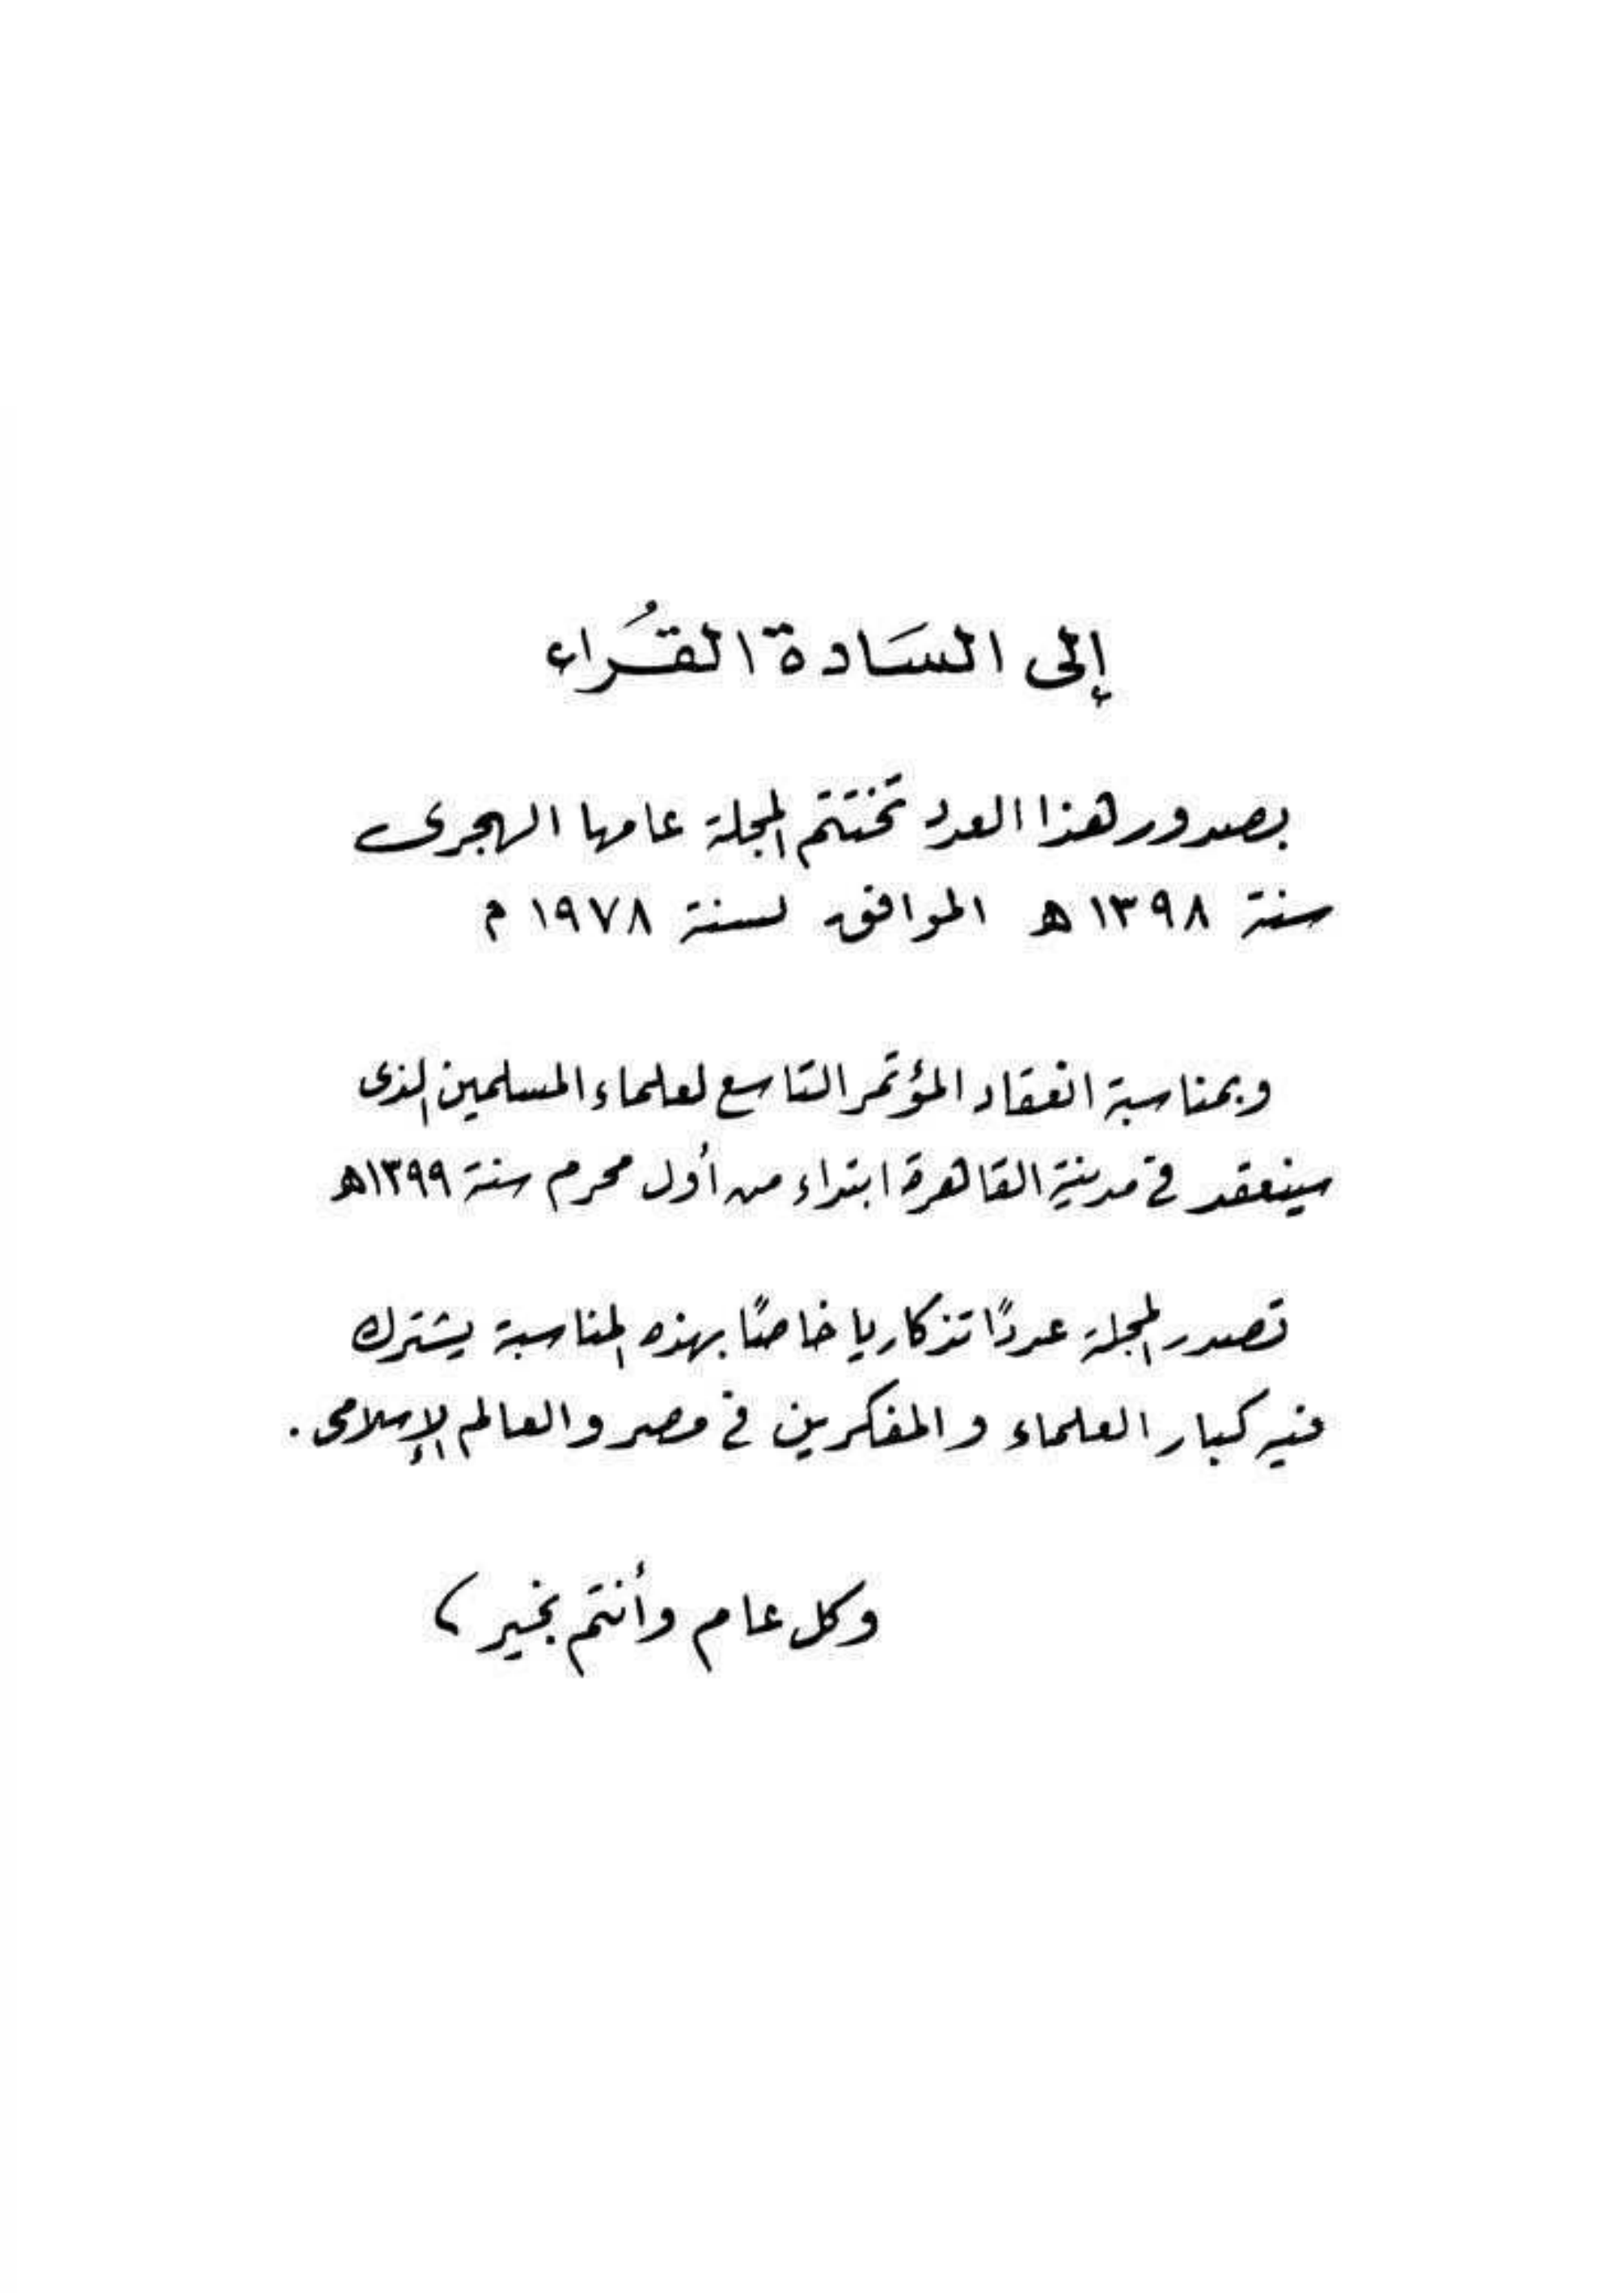 إلى السَادة القُراء
بصدور هذا العدد تختتم المجلة عامها الهجرى
سنة ١٣٩٨ هـ الموافق لسنة ١٩٧٨ م
وبمناسبة انعقاد المؤتمر التاسع لعلماء المسلمين الذى
سينعقد فى مدينة القاهرة ابتداء من أول محرم سنة ١٣٩٩هـ
تصدر المجلة عددًا تذكاريا خاصًا بهذه المناسبة يشترك
فيه كبار العلماء والمفكرين فى مصر والعالم الإسلامى .
وكل عام وأنتم بخير